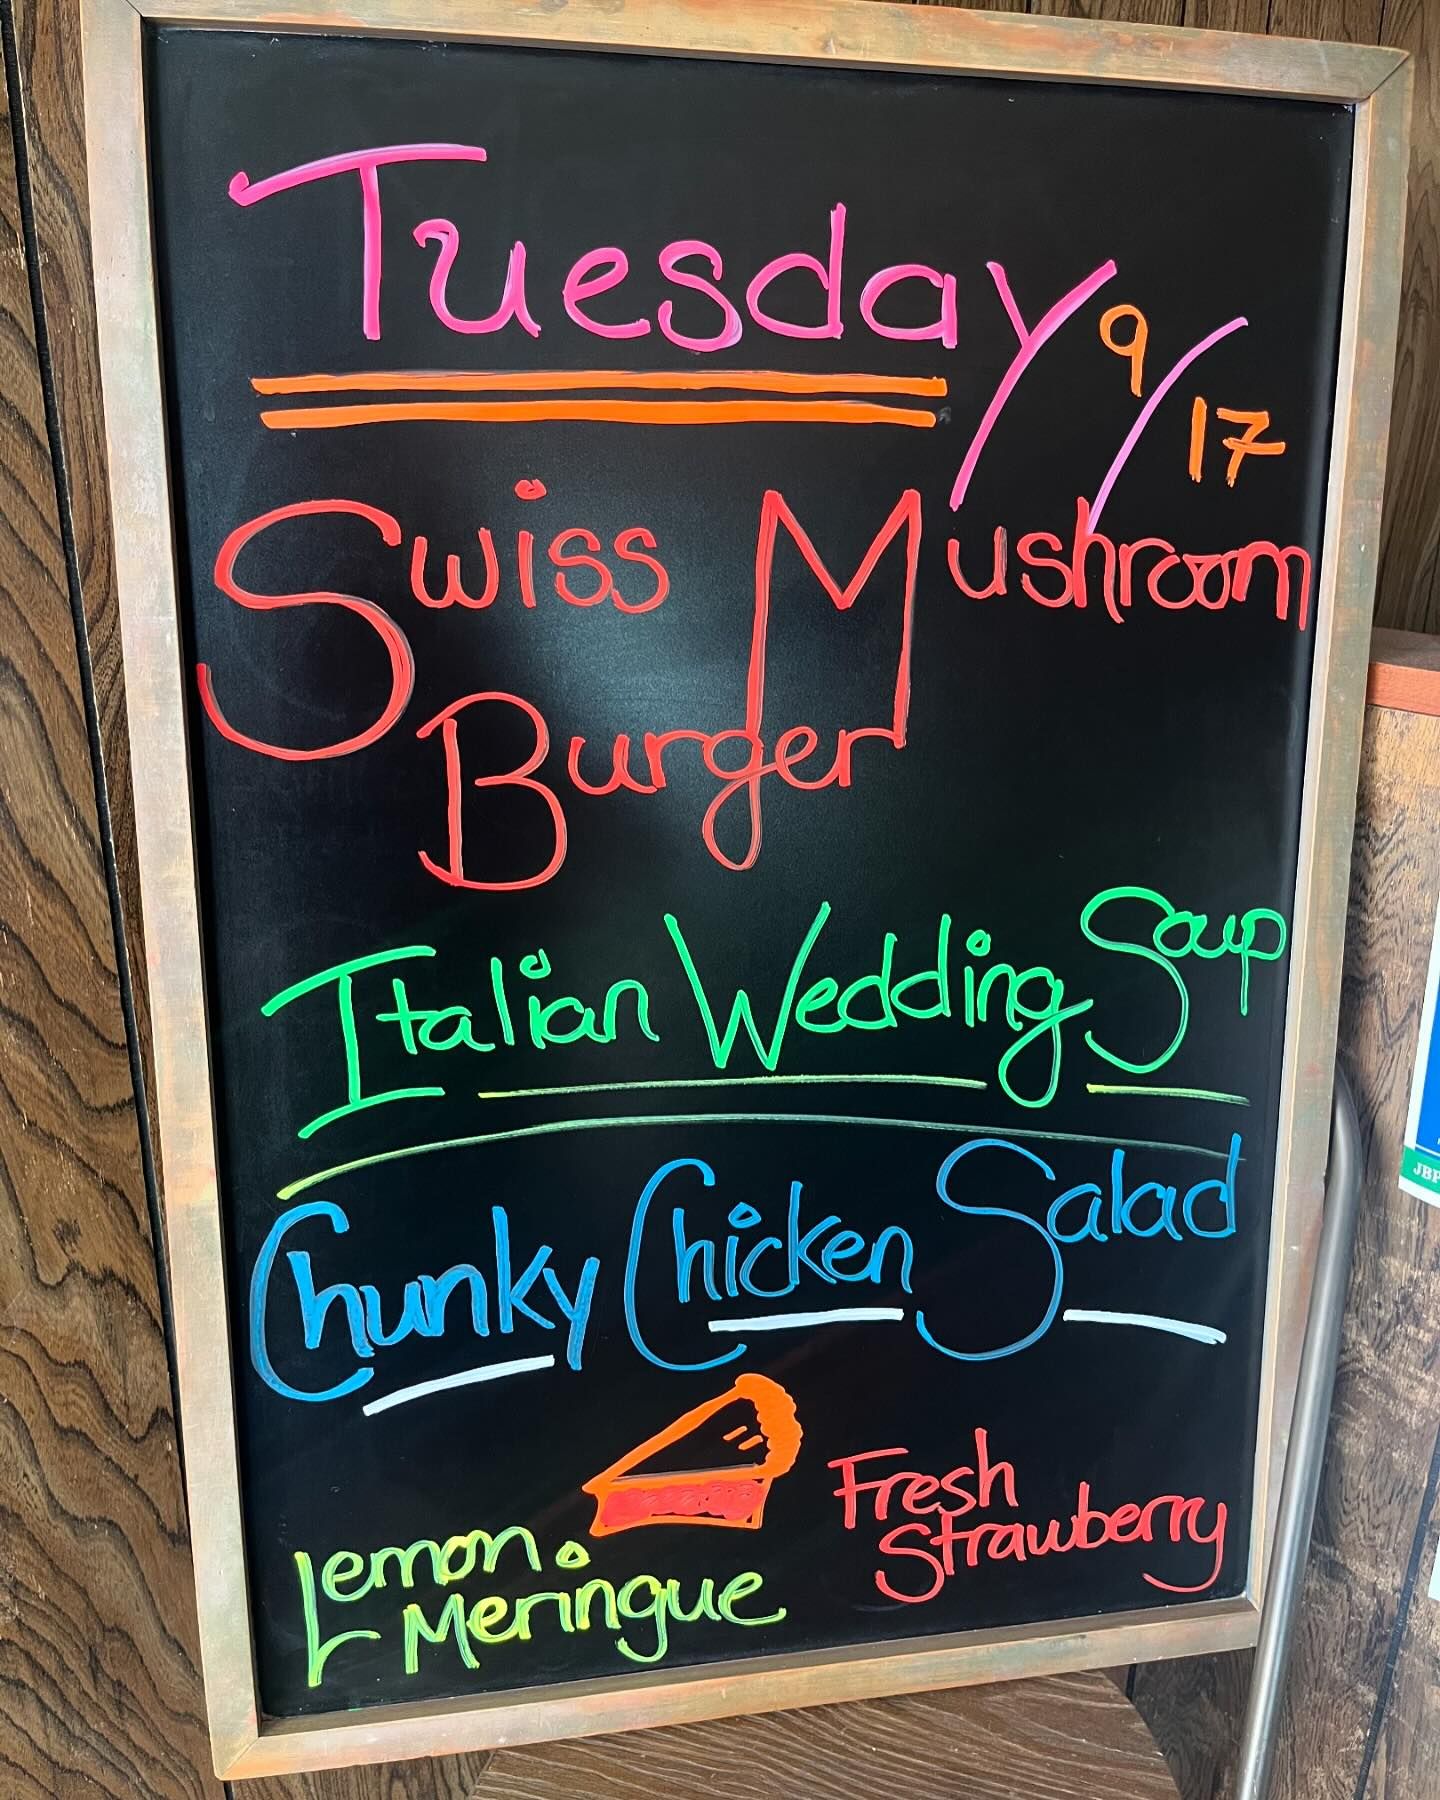 Tuesday 9/17
Swiss Mushroom
Burger
Italian Wedding Soup
Chunky Chicken Salad
Lemon
Meringue
Fresh
Strawberry
JBP